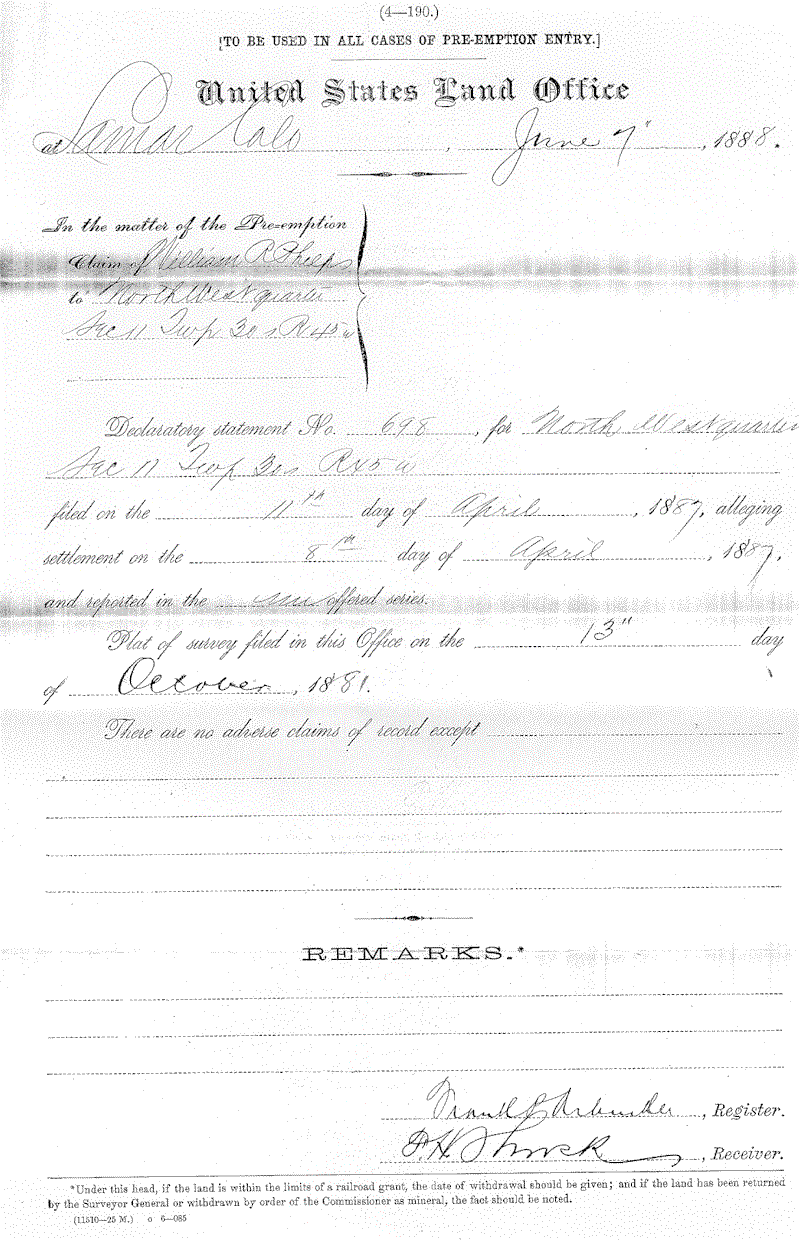 (4—190.)
[TO BE USED IN ALL CASES OF PRE-EMPTION ENTRY.]
United States Land Office
at Lamar Colo, June 7", 1888.
In the matter of the Pre=emption
Claim of William R Phelps
to North West quarter
Sec 11 Twp 30 s R 45 w
Declaratory statement No. 698, for North West quarter
Sec 11 Twp 30 s R 45 w
filed on the 11th day of April, 1887, alleging
settlement on the 8th day of April, 1887,
and reported in the un offered series.
Plat of survey filed in this Office on the 13" day
of October, 1881.
There are no adverse claims of record except
REMARKS.*
Frank Arbuckle, Register.
, Receiver.
*Under this head, if the land is within the limits of a railroad grant, the date of withdrawal should be given; and if the land has been returned
by the Surveyor General or withdrawn by order of the Commissioner as mineral, the fact should be noted.
(11510—25 M.) o 6—085